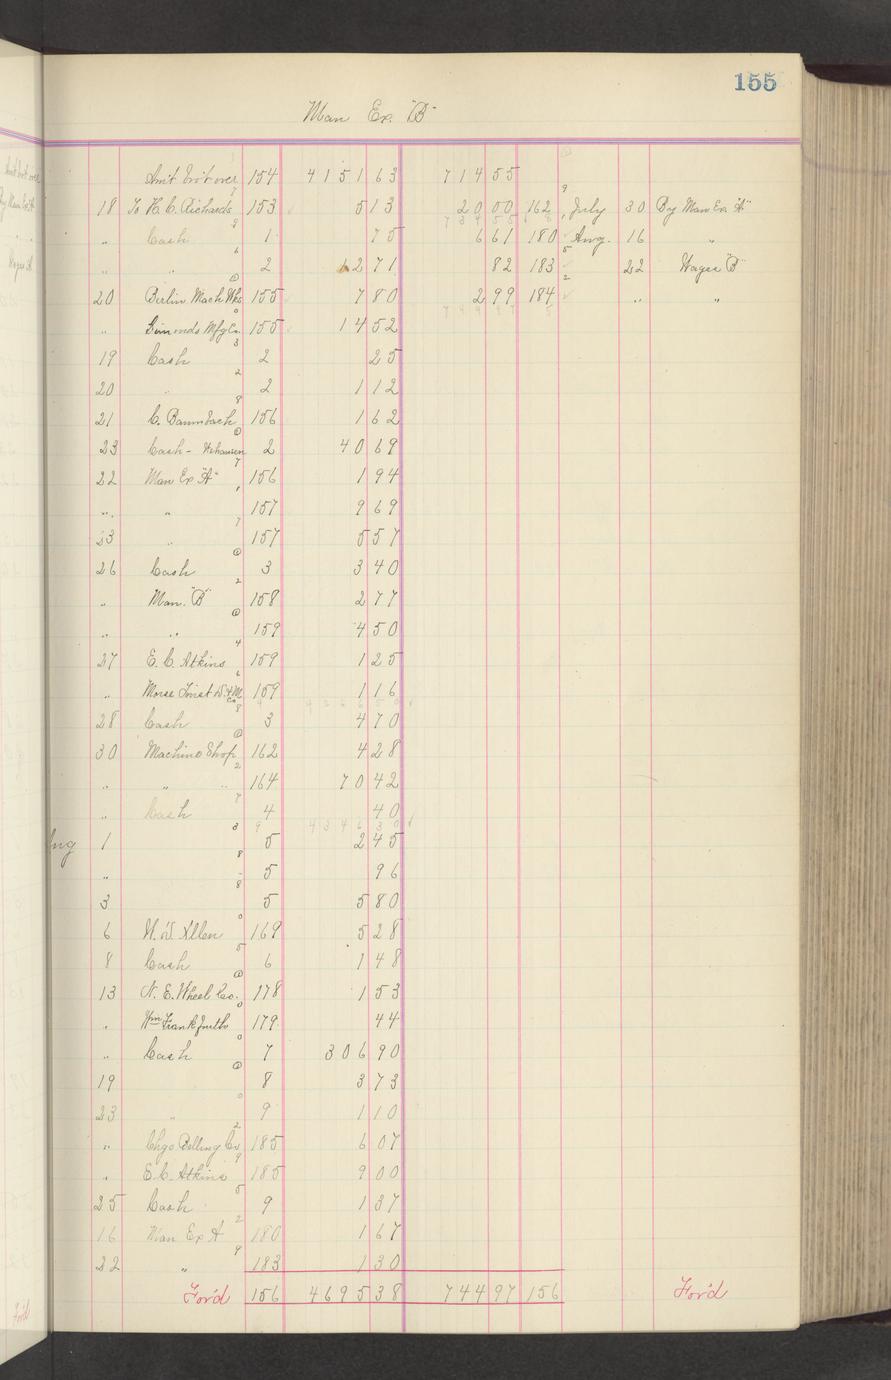 155
Man Ex. "B"
Am't bro't over 154 4151 63 714 55
18 To H. C. Richards 153 5 13 20 00 162 July 30 By Man Ex "A"
" Cash 1 75 6 61 180 Aug. 16 "
" " 2 12 71 82 183 22 Wages "B"
20 Berlin Mach Wks 155 7 80 2 99 184 " "
" Simonds Mfg Co. 155 14 52
19 Cash 2 25
20 " 2 1 12
21 C. Baumbach 156 1 62
23 Cash - 2 40 69
22 Man Ex "A" 156 1 94
" " 157 9 69
23 " 157 5 57
26 Cash 3 3 40
" Man. "B" 158 2 77
" " 159 4 50
27 E. C. Atkins 159 1 25
" Morse Twist D. & M. Co 159 1 16
28 Cash 3 4 70
30 Machine Shop 162 4 28
" " " 164 70 42
" Cash 4 40
Aug 1 5 2 45
" " 5 96
3 5 5 80
6 W. D. Allen 169 5 28
8 Cash 6 1 48
13 N. E. Wheel Co. 178 1 53
" Wm Frankfurth 179 44
" Cash 7 306 90
19 8 3 73
23 " 9 1 10
" Chgo Belting Co 185 6 07
" E. C. Atkins 185 9 00
25 Cash 9 1 37
16 Man Ex A 180 1 67
22 " 183 1 30
For'd 156 4695 38 744 97 156 For'd